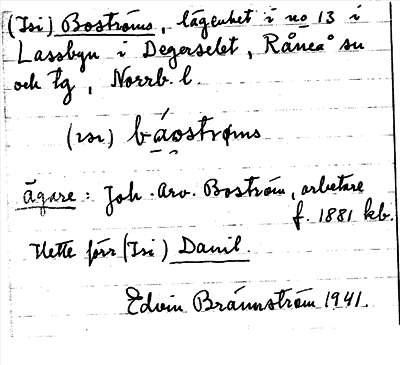 (Isi) Boströms, lägenhet i no 13 i
Lassbyn i Degerselet, Råneå sn
och tg, Norrb. l.
(isi) båostrøms
ägare: Joh. Arv. Boström, arbetare
f. 1881 kb.
Hette förr (Isi) Danil.
Edvin Brännström 1941.